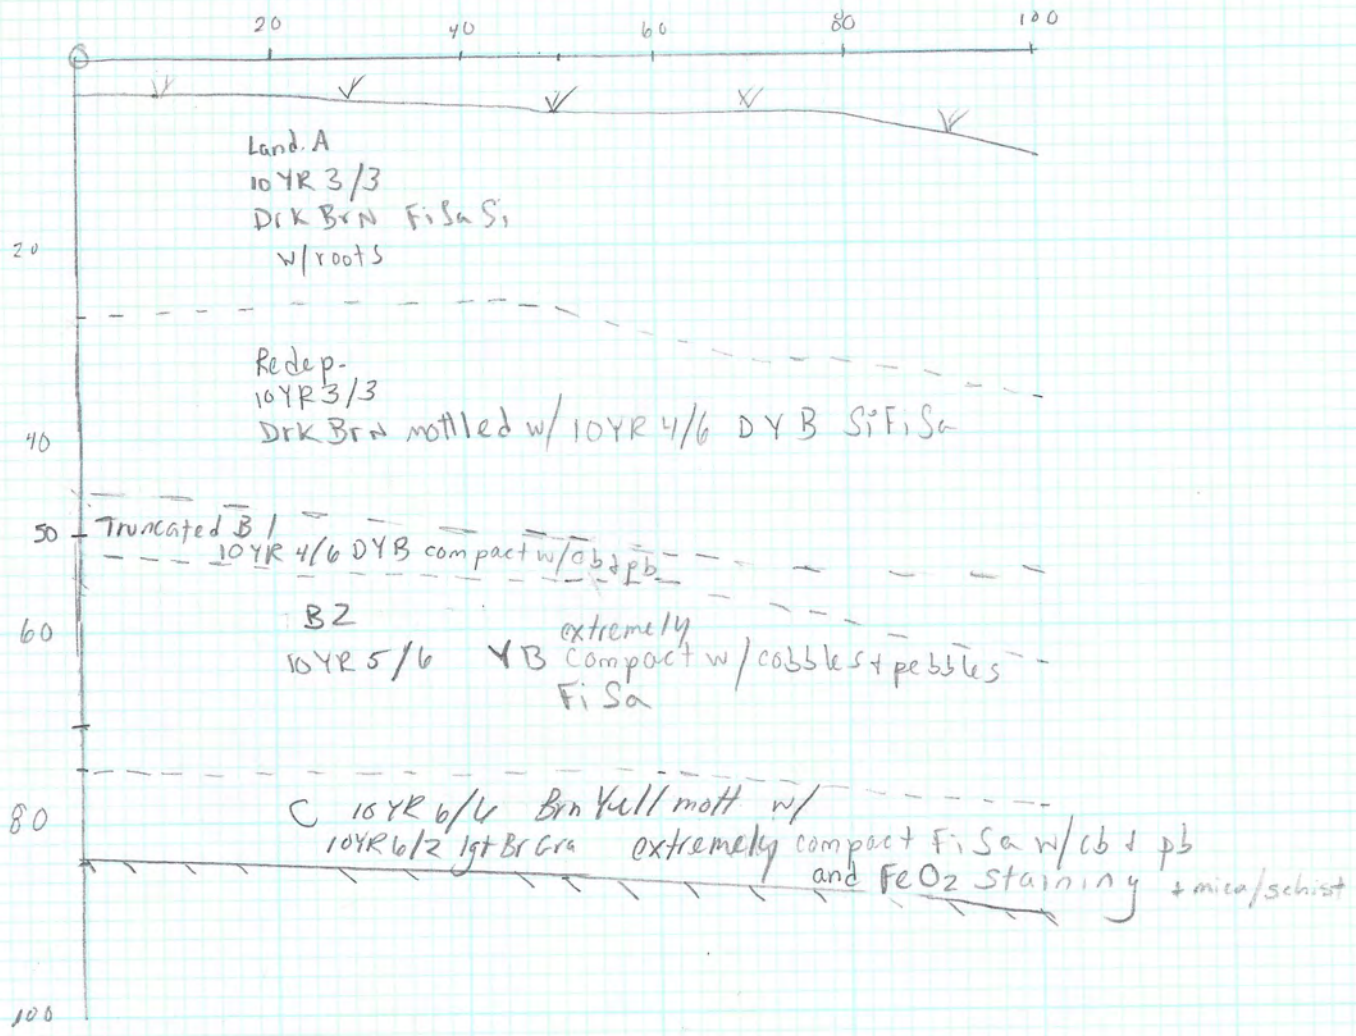 0 20 40 60 80 100
Land. A
10 YR 3/3
Drk BrN FiSaSi
20
w/roots
Redep-
10YR 3/3
DrK BrN mottled w/ 10YR 4/6 DYB SiFiSa
40
50 Truncated B1
10YR 4/6 DYB compact w/cb & pb
B2
60
extremely
10YR 5/6 YB compact w/cobbles + pebbles
FiSa
C 10YR 6/6 Brn Yell mott w/
80
10YR 6/2 lgt Br Gra extremely compact FiSa w/cb & pb
and FeO2 staining + mica/schist
100